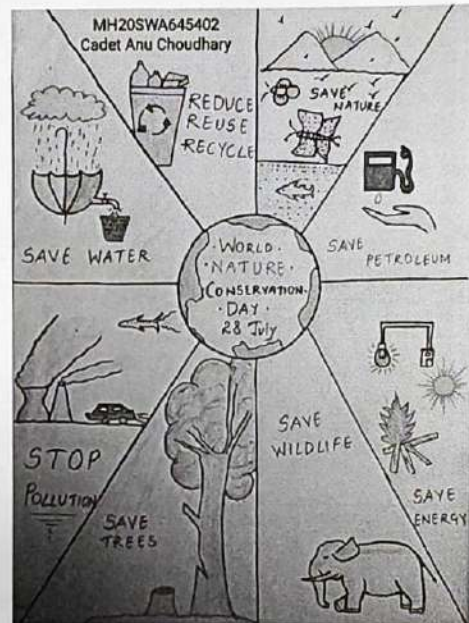 MH20SWA645402
Cadet Anu Choudhary
REDUCE
REUSE
RECYCLE
SAVE
NATURE
SAVE WATER
SAVE
PETROLEUM
WORLD
NATURE
CONSERVATION
DAY
28 July
STOP
POLLUTION
SAVE
TREES
SAVE
WILDLIFE
SAVE
ENERGY